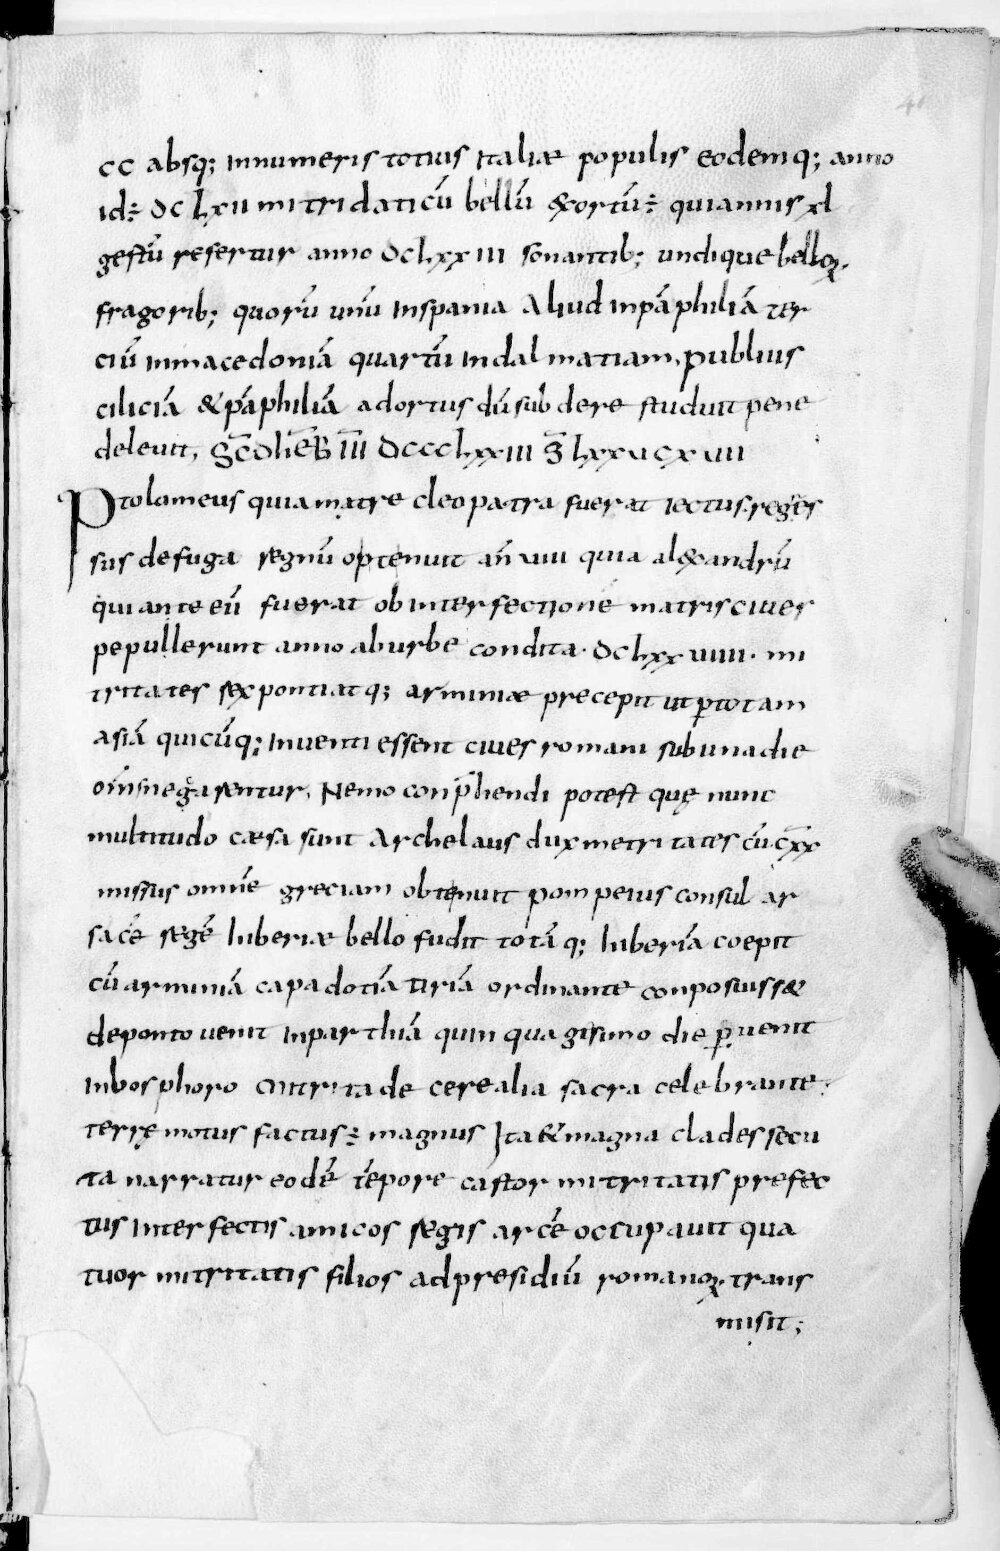 cc absq; innumeris totius Italiae populis eodemq; anno
id÷ dclxii mitridaticū bellū exortū÷ quiannis xl
gestū resertur anno dclxxiii sonantib; undique belloꝝ
fragorib; quorū unū Inspania Aliud inpāphiliā ter
ciū inmacedoniā quartū indalmatiam. publius
ciliciā &pāphiliā adortus dū subdere studuit pene
deleuit, dccclxxiii lxxu cxuii
Ptolomeus quia matre cleopatra fuerat iectus. reges
sus defuga regnū optenuit an̄ uiii quia al&xandrū
qui ante eū fuerat ob interfectionē matris ciues
pepullerunt anno aburbe condita. dclxxuiiii. mi
tritates rex pontiatq; arminiae precepit ut ꝑtotam
asiā quicūq; Inuenti essent ciues romani sub una die
om̄s negarentur. Nemo conp̄hendi potest quę nunc
multitudo caesa sunt Archelaus dux metritates cū c̄xx
missus omnē greciam obtenuit pompeius consul ar
sacē regē hiberiae bello fudit totāq; hiberiā coepit
cū arminiā capadotiā tiriā ordinante conposuiss&
deponto uenit inparthiā quinquagisimo die ꝑuenit
inbosphoro mitritade cerealia sacra celebrante.
terrę motus factus÷ magnus Ita & magna clades secu
ta narratur eodē tēpore castor mitritatis prefec
tus interfectis amicos regis arcē occupauit qua
tuor mitritatis filios adpresidiū romanoꝝ. trans
misit;